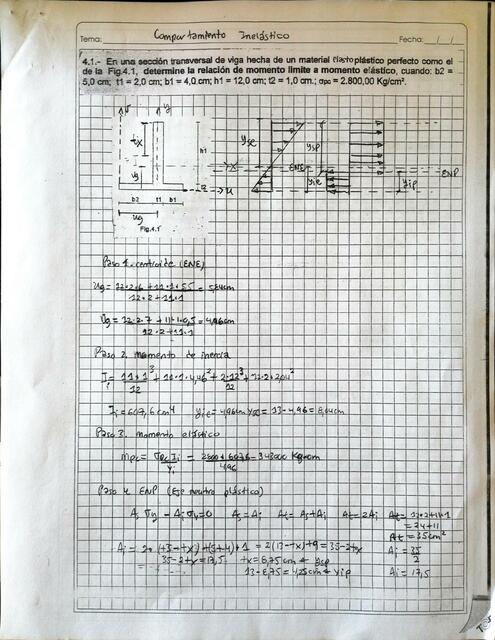 Tema: Comportamiento Inelástico Fecha: / /
4.1.- En una sección transversal de viga hecha de un material elastoplástico perfecto como el
de la Fig.4.1, determine la relación de momento límite a momento elástico, cuando: b2 =
5,0 cm; t1 = 2,0 cm; b1 = 4,0 cm; h1 = 12,0 cm; t2 = 1,0 cm.; σpc = 2.800,00 Kg/cm².
v y
tx
h1
yg
x
t2
u
b2 t1 b1
ug
Fig.4.1
yse ysp
ENE
yie
ENP
yip
Paso 1. centroide (ENE)
Ug = 12·2·6 + 11·1·5,5 = 5,84cm
12·2 + 11·1
Vg = 12·2·7 + 11·1·0,5 = 4,96cm
12·2 + 11·1
Paso 2. momento de inercia
Ii = 11×1³ + 11·1·4,46² + 2·12³ + 12·2·2,04²
12 12
Ii = 607,6 cm⁴ yie = 4,96cm yse = 13 - 4,96 = 8,04cm
Paso 3. momento elástico
Mpc = σpc Ii = 2800 × 607,6 = 343000 Kg·cm
Yi 4,96
Paso 4. ENP (Eje neutro plástico)
As σy - Ai σy = 0 As = Ai At = As + Ai At = 2Ai At = 12·2 + 11·1
= 24 + 11
At = 35cm²
Ai = 35
2
Ai = 17,5
= 2(13 - tx) + 9 = 35 - 2tx
35 - 2tx = 17,5 tx = 8,75cm = ysp
13 - 8,75 = 4,25cm = yip